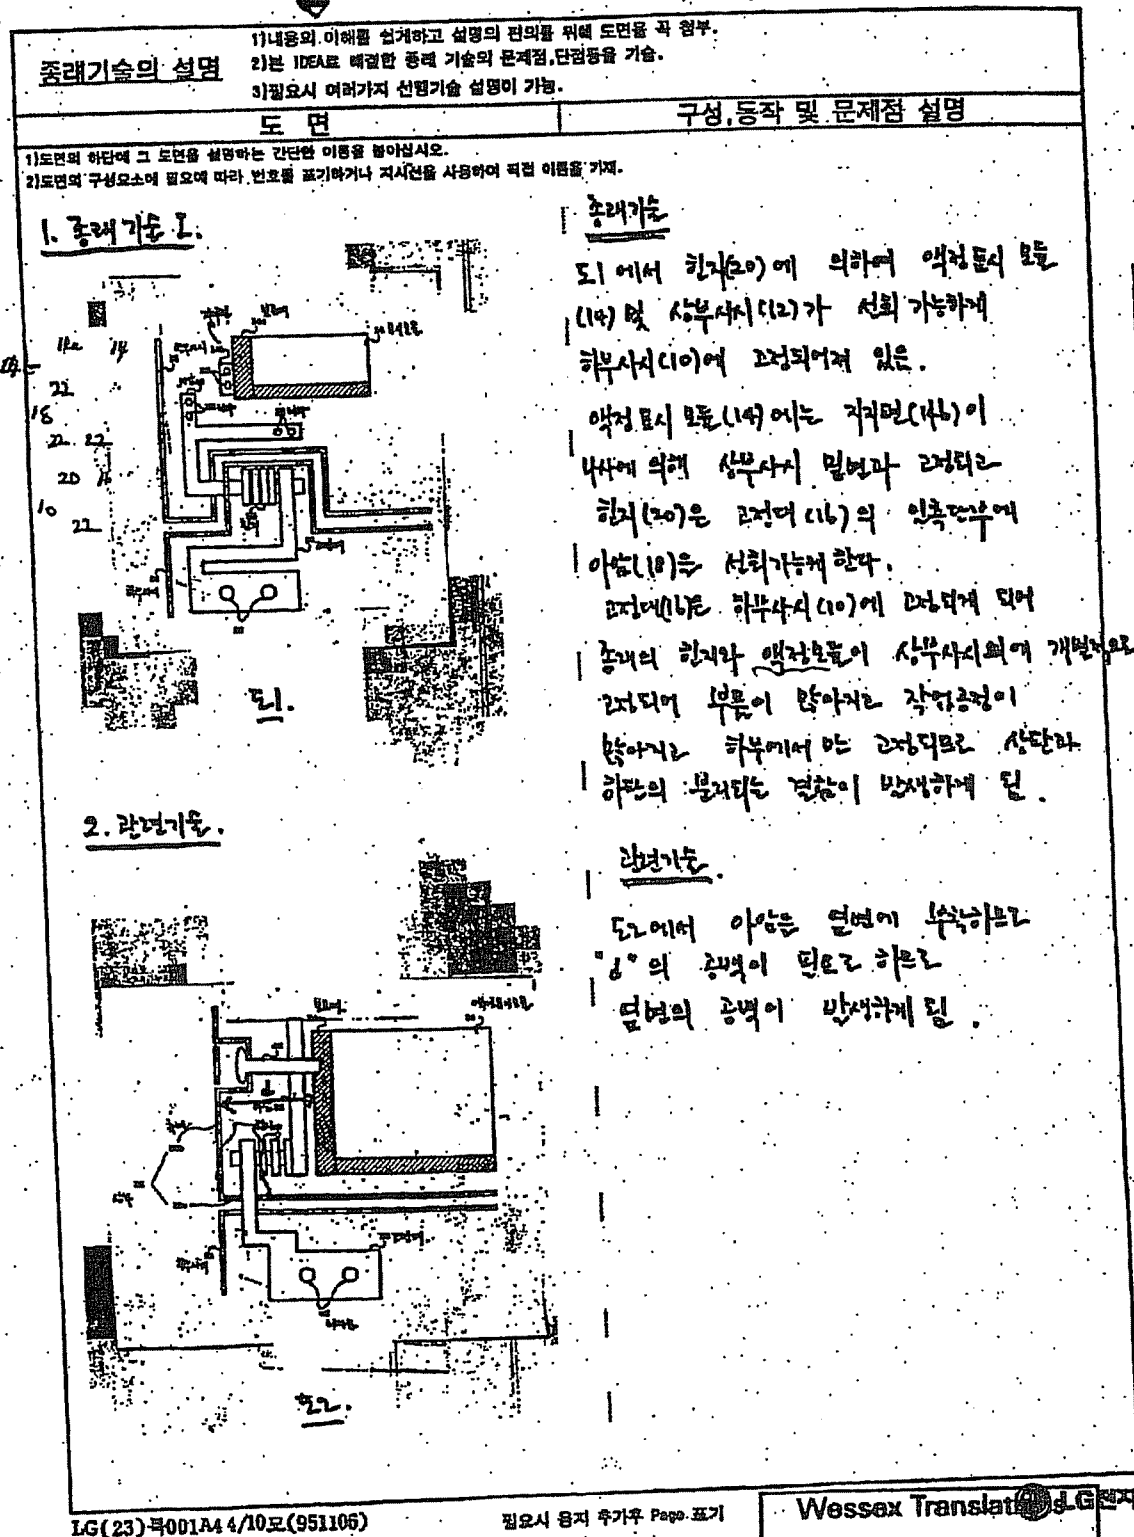 종래기술의 설명
1)내용의 이해를 쉽게하고 설명의 편의를 위해 도면을 꼭 첨부.
2)본 IDEA로 해결한 종래 기술의 문제점,단점등을 기술.
3)필요시 여러가지 선행기술 설명이 가능.
도 면
구성,동작 및 문제점 설명
1)도면의 하단에 그 도면을 설명하는 간단한 이름을 붙이십시오.
2)도면의 구성요소에 필요에 따라 번호를 표기하거나 지시선을 사용하여 직접 이름을 기재.
1. 종래기술 I.
14
22
18
22 22
20 16
10
22
도1.
2. 관련기술.
d
도2.
종래기술
도1에서 힌지(20)에 의하여 액정표시 모듈
(14) 및 상부샤시(12)가 선회 가능하게
하부샤시(10)에 고정되어져 있음.
액정표시 모듈(14)에는 지지면(14b)이
나사에 의해 상부샤시 밑면과 고정되고
힌지(20)은 고정대(16)의 일측단부에
아암(18)은 선회가능케 한다.
고정대(16)은 하부샤시(10)에 고정되게 되어
종래의 힌지와 액정모듈이 상부샤시외에 개별적으로
고정되어 부품이 많아지고 작업공정이
많아지고 하부에서 만 고정되므로 상단과
하판의 분리되는 결함이 발생하게 됨.
관련기술.
도2에서 아암은 옆면에 부착하므로
"d"의 공백이 필요로 하므로
밑면의 공백이 발생하게 됨.
LG(23)-특001A4 4/10모(951106)
필요시 용지 추가후 Page 표기
Wessex Translations
LG전자